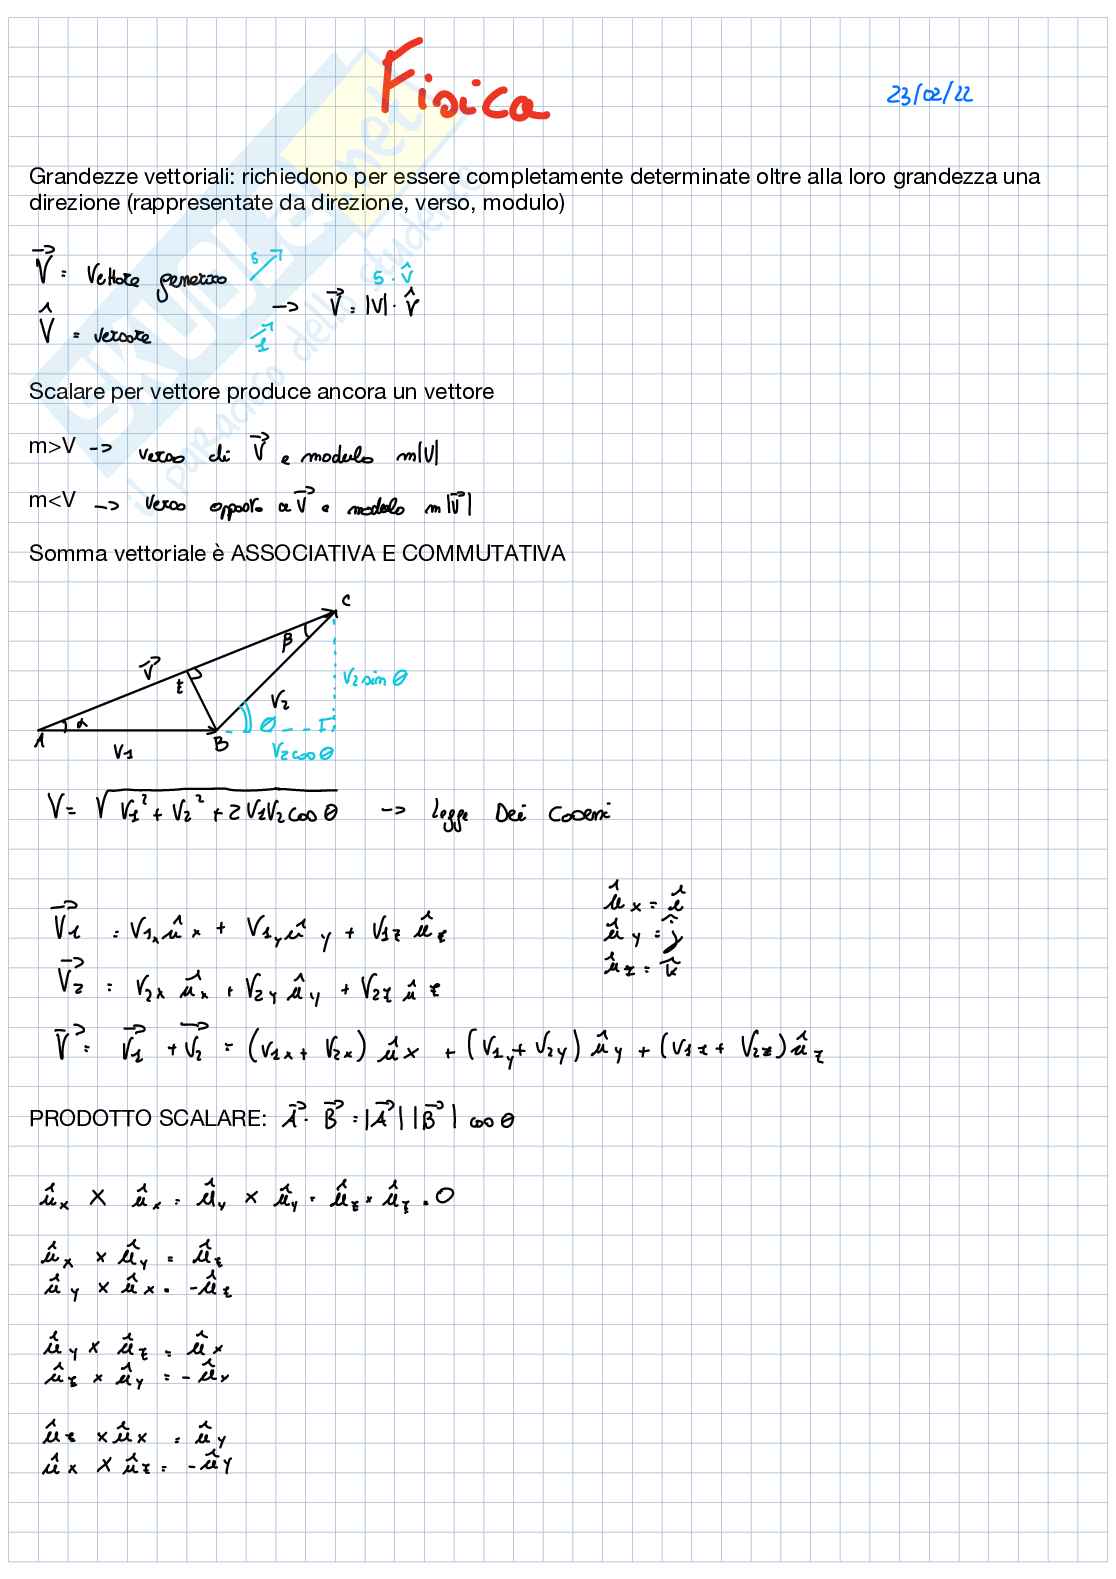 Fisica
23/02/22
Grandezze vettoriali: richiedono per essere completamente determinate oltre alla loro grandezza una
direzione (rappresentate da direzione, verso, modulo)
V⃗ = Vettore generico 5
5 · V̂
V̂ = versore 1 -> V⃗ = |V| · V̂
Scalare per vettore produce ancora un vettore
m>V -> verso di V⃗ e modulo m|V|
m<V -> verso opposto a V⃗ e modulo m|V⃗|
Somma vettoriale è ASSOCIATIVA E COMMUTATIVA
C
β
V⃗
E
V₂ sin θ
V₂
α
θ
A
B
V₁
V₂ cos θ
V = √(V₁² + V₂² + 2V₁V₂ cos θ) -> legge Dei Coseni
û x = î
V⃗₁ = V₁x û x + V₁y û y + V₁z û z
û y = ĵ
û z = k̂
V⃗₂ = V₂x û x + V₂y û y + V₂z û z
V⃗ = V⃗₁ + V⃗₂ = (V₁x + V₂x) û x + (V₁y + V₂y) û y + (V₁z + V₂z) û z
PRODOTTO SCALARE: A⃗ · B⃗ = |A⃗| |B⃗| cos θ
û x × û x = û y × û y = û z × û z = 0
û x × û y = û z
û y × û x = -û z
û y × û z = û x
û z × û y = -û x
û z × û x = û y
û x × û z = -û y
SKUOLA.net
il paradiso dello studente